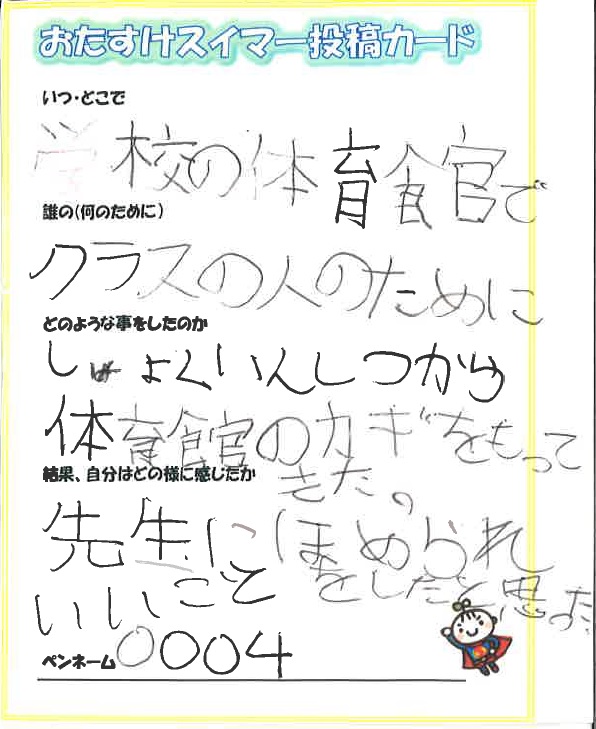 おたすけスイマー投稿カード
いつ・どこで
学校の体育館で
誰の(何のために)
クラスの人のために
どのような事をしたのか
しょくいんしつから
体育館のカギをもって
きた。
結果、自分はどの様に感じたか
先生にほめられ
いいことをしたと思った
ペンネーム0004